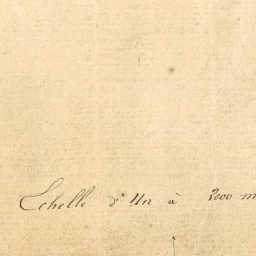 Echelle d'Un à 2000 m